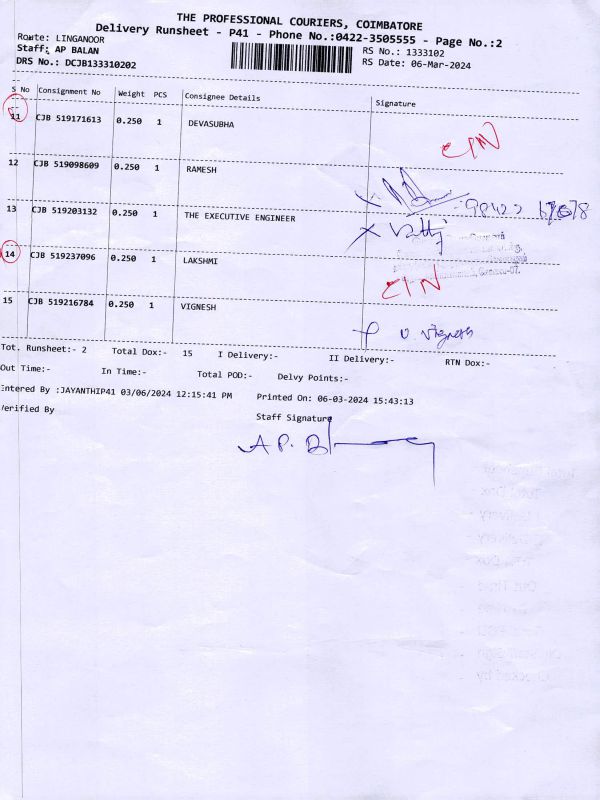 THE PROFESSIONAL COURIERS, COIMBATORE
Delivery Runsheet - P41 - Phone No.:0422-3505555 - Page No.:2
Route: LINGANOOR
RS No.: 1333102
Staff: AP BALAN
RS Date: 06-Mar-2024
DRS No.: DCJB133310202
S No Consignment No Weight PCS Consignee Details Signature
11 CJB 519171613 0.250 1 DEVASUBHA
12 CJB 519098609 0.250 1 RAMESH
13 CJB 519203132 0.250 1 THE EXECUTIVE ENGINEER
14 CJB 519237096 0.250 1 LAKSHMI
15 CJB 519216784 0.250 1 VIGNESH
U. Vignesh
Tot. Runsheet:- 2 Total Dox:- 15 I Delivery:- II Delivery:- RTN Dox:-
Out Time:- In Time:- Total POD:- Delvy Points:-
Entered By :JAYANTHIP41 03/06/2024 12:15:41 PM Printed On: 06-03-2024 15:43:13
Verified By Staff Signature
A P. B